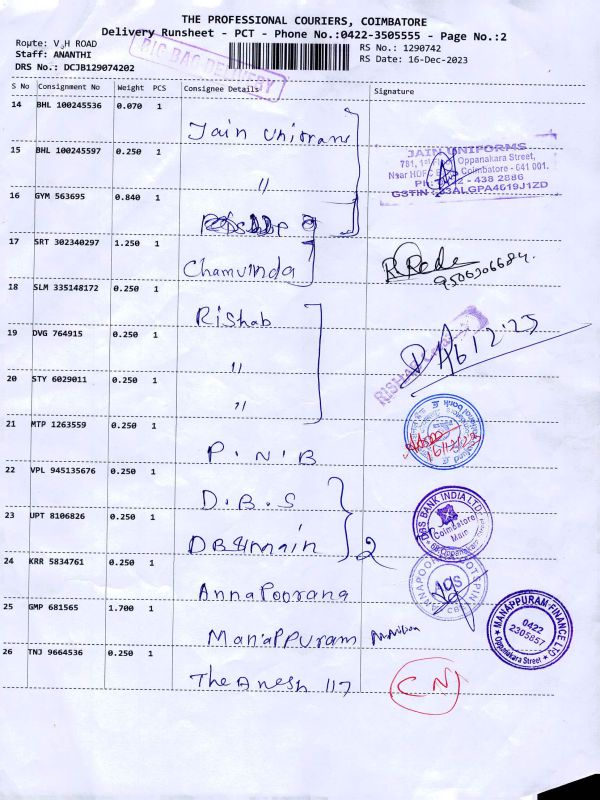 THE PROFESSIONAL COURIERS, COIMBATORE
Delivery Runsheet - PCT - Phone No.:0422-3505555 - Page No.:2
Route: V.H ROAD
RS No.: 1290742
Staff: ANANTHI
RS Date: 16-Dec-2023
DRS No.: DCJB129074202
BIG BAG DELIVERY
S No Consignment No Weight PCS Consignee Details Signature
14 BHL 100245536 0.070 1
Jain Unitrans
15 BHL 100245597 0.250 1
"
JAIN UNIFORMS
781, 1st Oppanakara Street,
Near HDFC Coimbatore - 641 001.
- 438 2886
16 GYM 563695 0.840 1
17 SRT 302340297 1.250 1
Chamvinda
18 SLM 335148172 0.250 1
Rishab
19 DVG 764915 0.250 1
"
20 STY 6029011 0.250 1
"
21 MTP 1263559 0.250 1
P.N.B
22 VPL 945135676 0.250 1
D.B.S
DBS BANK INDIA LTD
Coimbatore
Main
23 UPT 8106826 0.250 1
DB main
2
24 KRR 5834761 0.250 1
Annapoorana
25 GMP 681565 1.700 1
Manappuram
MANAPPURAM FINANCE LTD
0422
2305857
Oppanakara Street
26 TNJ 9664536 0.250 1
The Anesh 117
CN